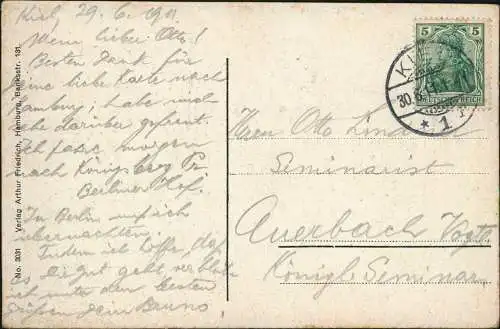 Kiel 29.6.1911
Mein lieber Otto!
Besten Dank für
Deine liebe Karte nach
Hamburg; habe mich
sehr darüber gefreut.
Ich fahre morgen
nach Königsberg Pr
Berliner Hof.
In Berlin muß ich
übernachten.
Indem ich hoffe, daß
es Dir gut geht, verbleibe
ich unter den besten
Grüßen Dein Bruno
No. 3031 Verlag Arthur Friedrich, Hamburg, Bankstr. 131.
5 5
DEUTSCHES REICH
30.6.11
* 1
Herrn Otto
Seminarist
Auerbach Vogtl
Königl. Seminar